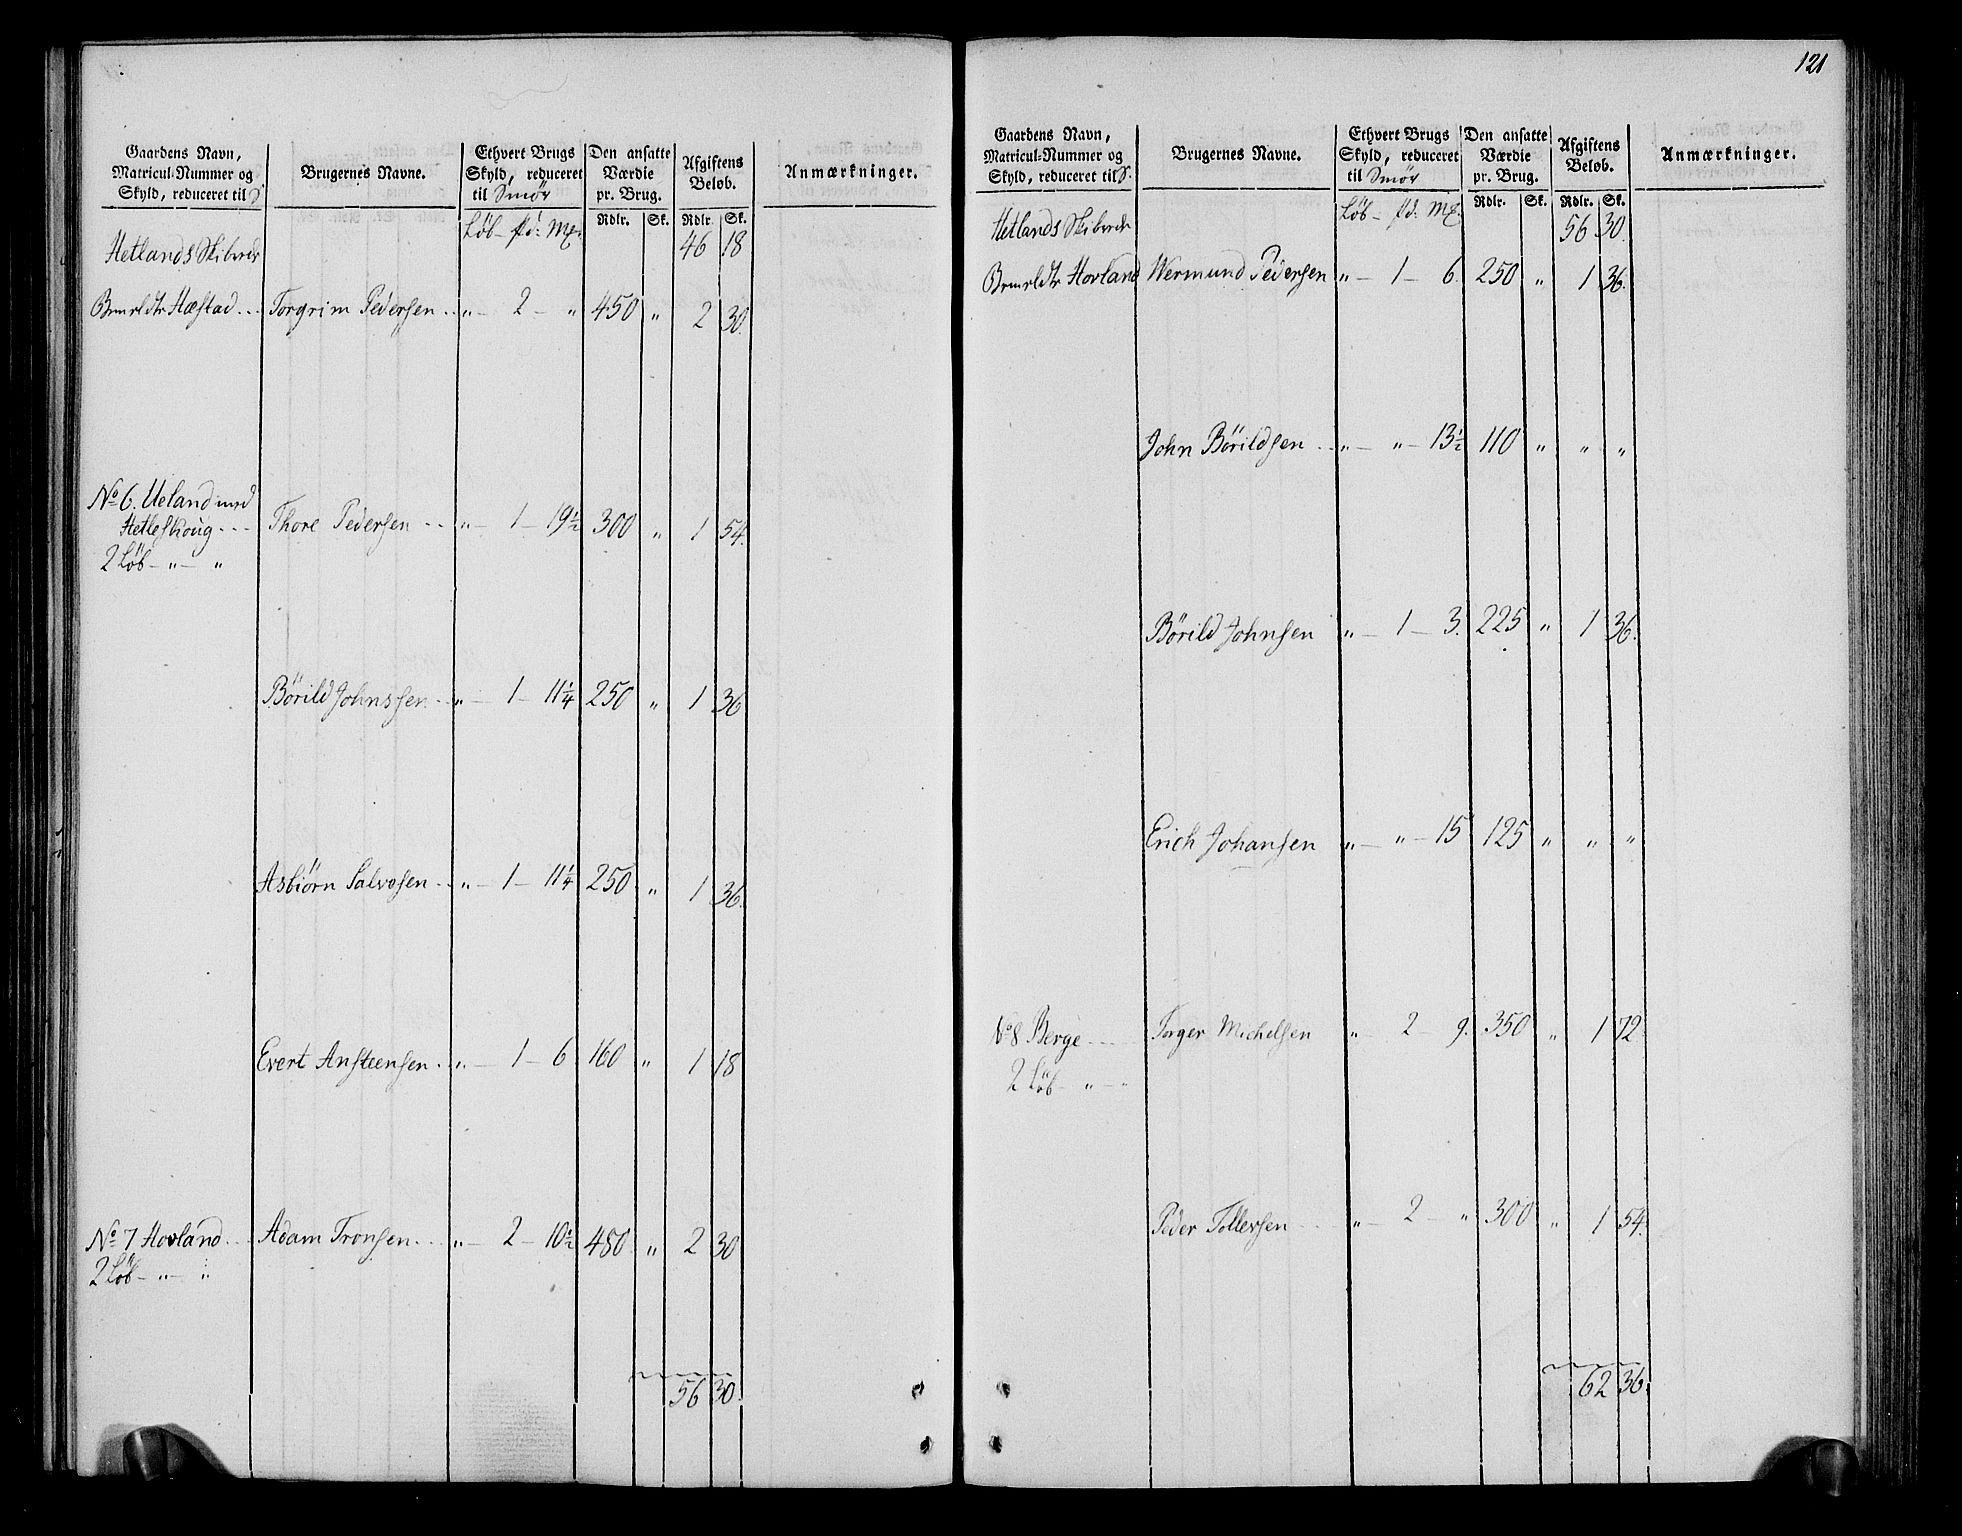 Gaardens Navn,
Matricul-Nummer og
Skyld, reduceret til S
Brugernes Navne.
Ethvert Brugs
Skyld, reduceret
til Smör
Den ansatte
Værdie
pr. Brug.
Afgiftens
Beløb.
Anmærkninger.
Löb - pd: Mg. Rdlr. Sk. Rdlr. Sk.
Hetlands Skibrede 46 18
Hæstad... Torgrim Pedersen .. „ — 2 — „ 450 „ 2 30.
No 6. Ueland med
Hetleskoug --- Thore Pedersen --- „ — 1 — 19½ 300 „ 1 54.
2 Löb - „ — „
Börild Johnssen .. „ — 1 — 11¼ 250 „ 1 36
Asbiörn Salvesen .. „ — 1 — 11¼ 250 „ 1 36.
Evert Ansteensen .. „ — 1 — 6 160 „ 1 18
No 7 Hovland... Adam Tronsen... „ — 2 — 10½ 480 „ 2 30
2 Löb — „ — „
56 30.
121
Gaardens Navn,
Matricul-Nummer og
Skyld, reduceret til S.
Brugernes Navne.
Ethvert Brugs
Skyld, reduceret
til Smör
Den ansatte
Værdie
pr. Brug.
Afgiftens
Beløb.
Anmærkninger.
Löb - pd: Mg. Rdlr. Sk. Rdlr. Sk.
Hetlands Skibrede 56 30.
Hovland Wermund Pedersen „ — 1 — 6. 250 „ 1 36.
John Börildsen .. „ — „ — 13½ 110 „ „ „
Börild Johnsen „ — 1 — 3. 225 „ 1 36.
Erich Johansen „ — „ — 15 125 „ „ „
No 8 Berge ---- Torger Michelsen „ — 2 — 9. 350 „ 1 72.
2 Löb - „ — „
Peder Tollersen „ — 2 — „ 300 „ 1 54.
62 36.